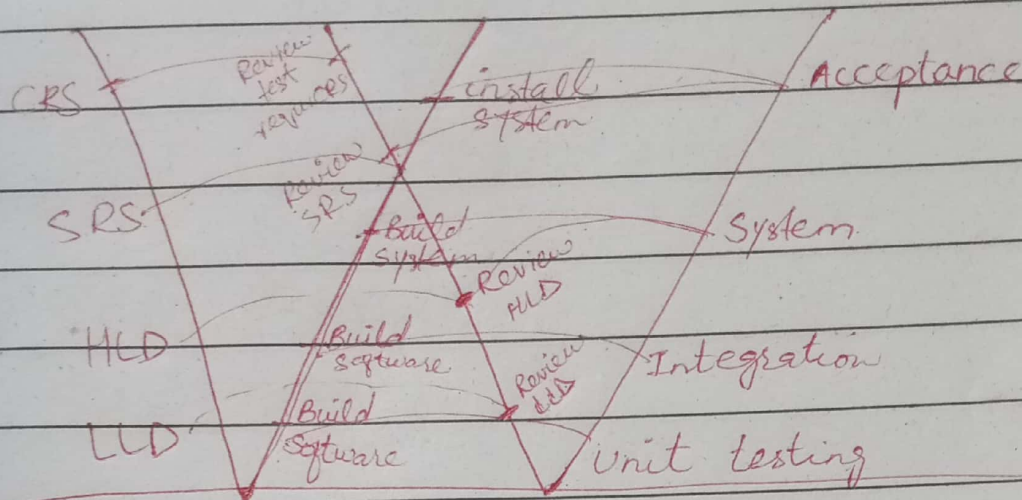 CRS
Review
test
requires
install
system
Acceptance
SRS
Review
SRS
Build
system
System
Review
HLD
HLD
Build
software
Integration
Review
LLD
LLD
Build
Software
Unit testing